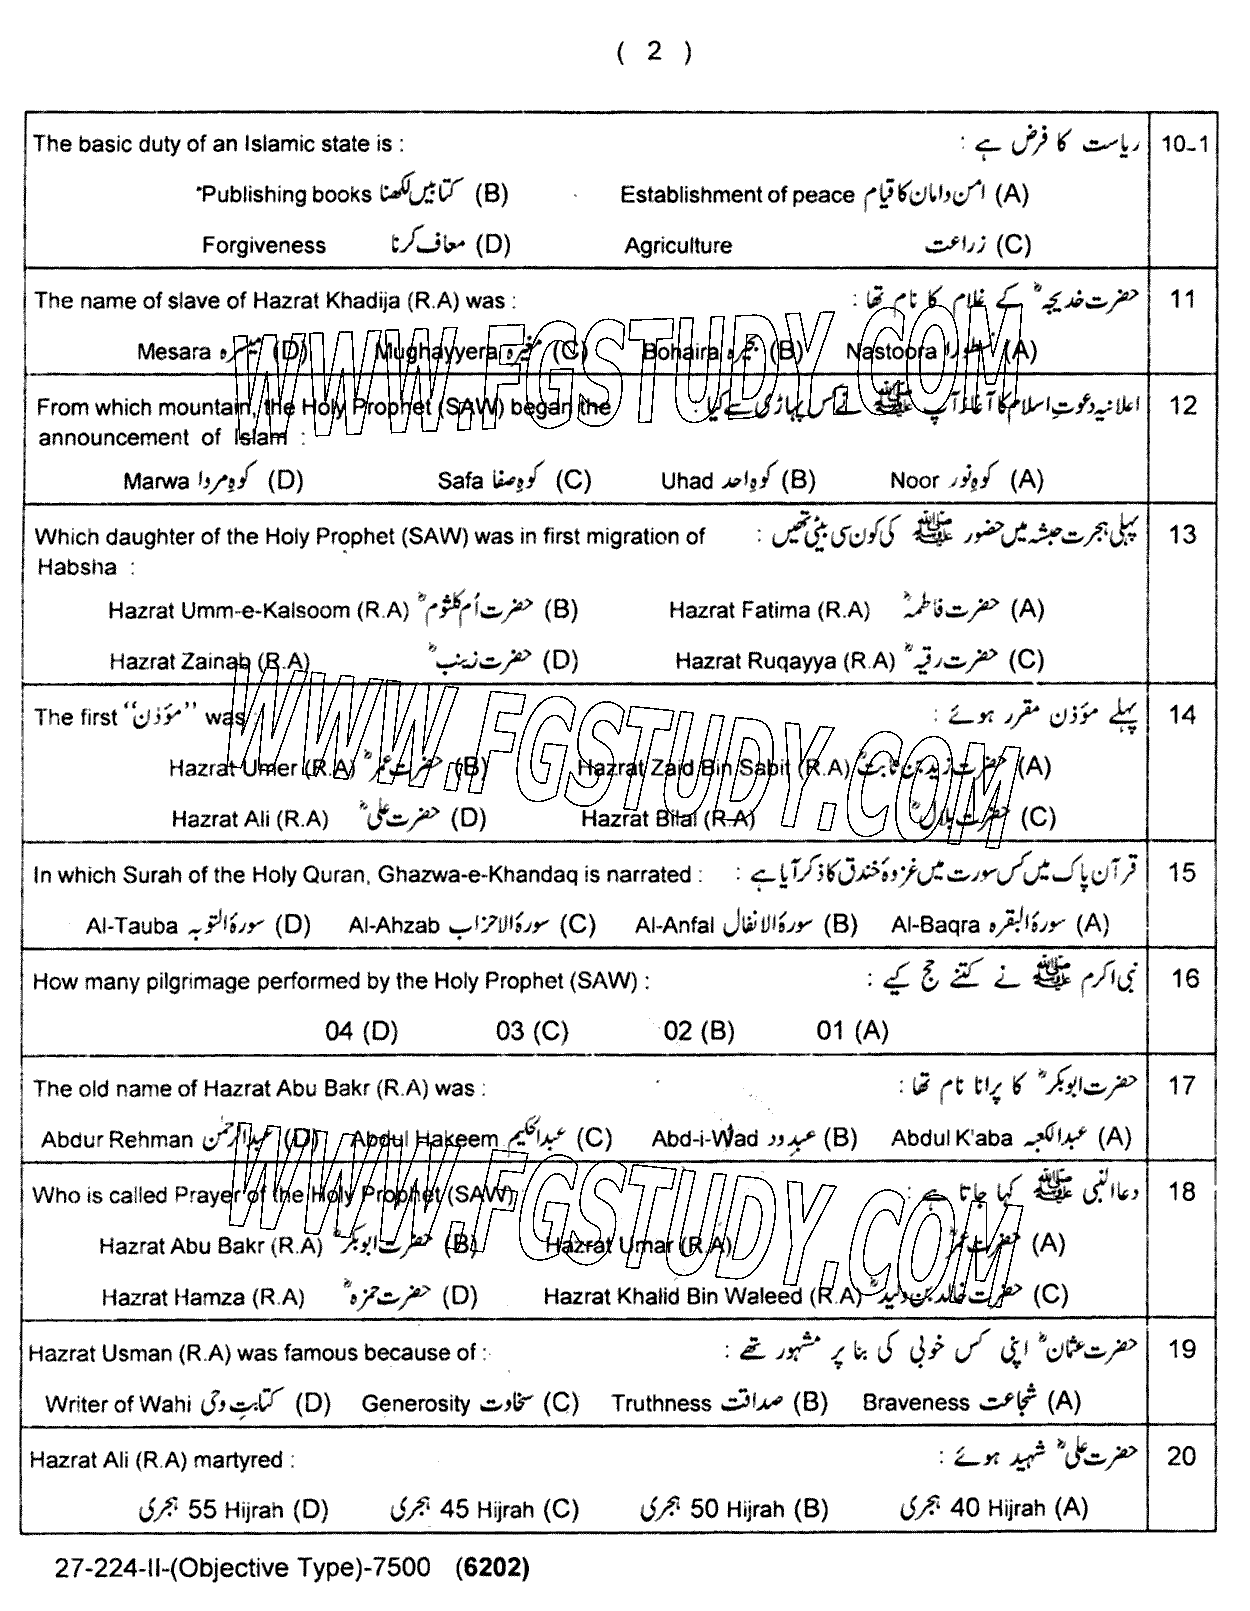 ( 2 )
The basic duty of an Islamic state is : ریاست کا فرض ہے : 10-1
Publishing books کتابیں لکھنا (B) Establishment of peace امن و امان کا قیام (A)
Forgiveness معاف کرنا (D) Agriculture زراعت (C)
The name of slave of Hazrat Khadija (R.A) was : حضرت خدیجہؓ کے غلام کا نام تھا : 11
Mesara میسرہ (D) Mughayyera مغیرہ (C) Bohaira بحیرہ (B) Nastoora نسطورا (A)
WWW.FGSTUDY.COM
From which mountain, the Holy Prophet (SAW) began the اعلانیہ دعوتِ اسلام کا آغاز آپ ﷺ نے کس پہاڑی سے کیا : 12
announcement of Islam :
Marwa کوہِ مروا (D) Safa کوہِ صفا (C) Uhad کوہِ احد (B) Noor کوہِ نور (A)
Which daughter of the Holy Prophet (SAW) was in first migration of پہلی ہجرت حبشہ میں حضور ﷺ کی کون سی بیٹی تھیں : 13
Habsha :
Hazrat Umm-e-Kalsoom (R.A) حضرت اُم کلثومؓ (B) Hazrat Fatima (R.A) حضرت فاطمہؓ (A)
Hazrat Zainab (R.A) حضرت زینبؓ (D) Hazrat Ruqayya (R.A) حضرت رقیہؓ (C)
The first "مؤذن" was پہلے مؤذن مقرر ہوئے : 14
WWW.FGSTUDY.COM
Hazrat Umer (R.A) حضرت عمرؓ (B) Hazrat Zaid Bin Sabit (R.A) حضرت زید بن ثابتؓ (A)
Hazrat Ali (R.A) حضرت علیؓ (D) Hazrat Bilal (R.A) حضرت بلالؓ (C)
In which Surah of the Holy Quran, Ghazwa-e-Khandaq is narrated : قرآن پاک میں کس سورت میں غزوۂ خندق کا ذکر آیا ہے : 15
Al-Tauba سورۃ التوبہ (D) Al-Ahzab سورۃ الاحزاب (C) Al-Anfal سورۃ الانفال (B) Al-Baqra سورۃ البقرہ (A)
How many pilgrimage performed by the Holy Prophet (SAW) : نبی اکرم ﷺ نے کتنے حج کیے : 16
04 (D) 03 (C) 02 (B) 01 (A)
The old name of Hazrat Abu Bakr (R.A) was : حضرت ابوبکرؓ کا پرانا نام تھا : 17
Abdur Rehman عبدالرحمٰن (D) Abdul Hakeem عبدالحکیم (C) Abd-i-Wad عبدِ ود (B) Abdul K'aba عبدالکعبہ (A)
WWW.FGSTUDY.COM
Who is called Prayer of the Holy Prophet (SAW) دعا النبی ﷺ کہا جاتا ہے : 18
Hazrat Abu Bakr (R.A) حضرت ابوبکرؓ (B) Hazrat Umar (R.A) حضرت عمرؓ (A)
Hazrat Hamza (R.A) حضرت حمزہؓ (D) Hazrat Khalid Bin Waleed (R.A) حضرت خالد بن ولیدؓ (C)
Hazrat Usman (R.A) was famous because of : حضرت عثمانؓ اپنی کس خوبی کی بنا پر مشہور تھے : 19
Writer of Wahi کتابتِ وحی (D) Generosity سخاوت (C) Truthness صداقت (B) Braveness شجاعت (A)
Hazrat Ali (R.A) martyred : حضرت علیؓ شہید ہوئے : 20
55 Hijrah ہجری (D) 45 Hijrah ہجری (C) 50 Hijrah ہجری (B) 40 Hijrah ہجری (A)
27-224-II-(Objective Type)-7500 (6202)